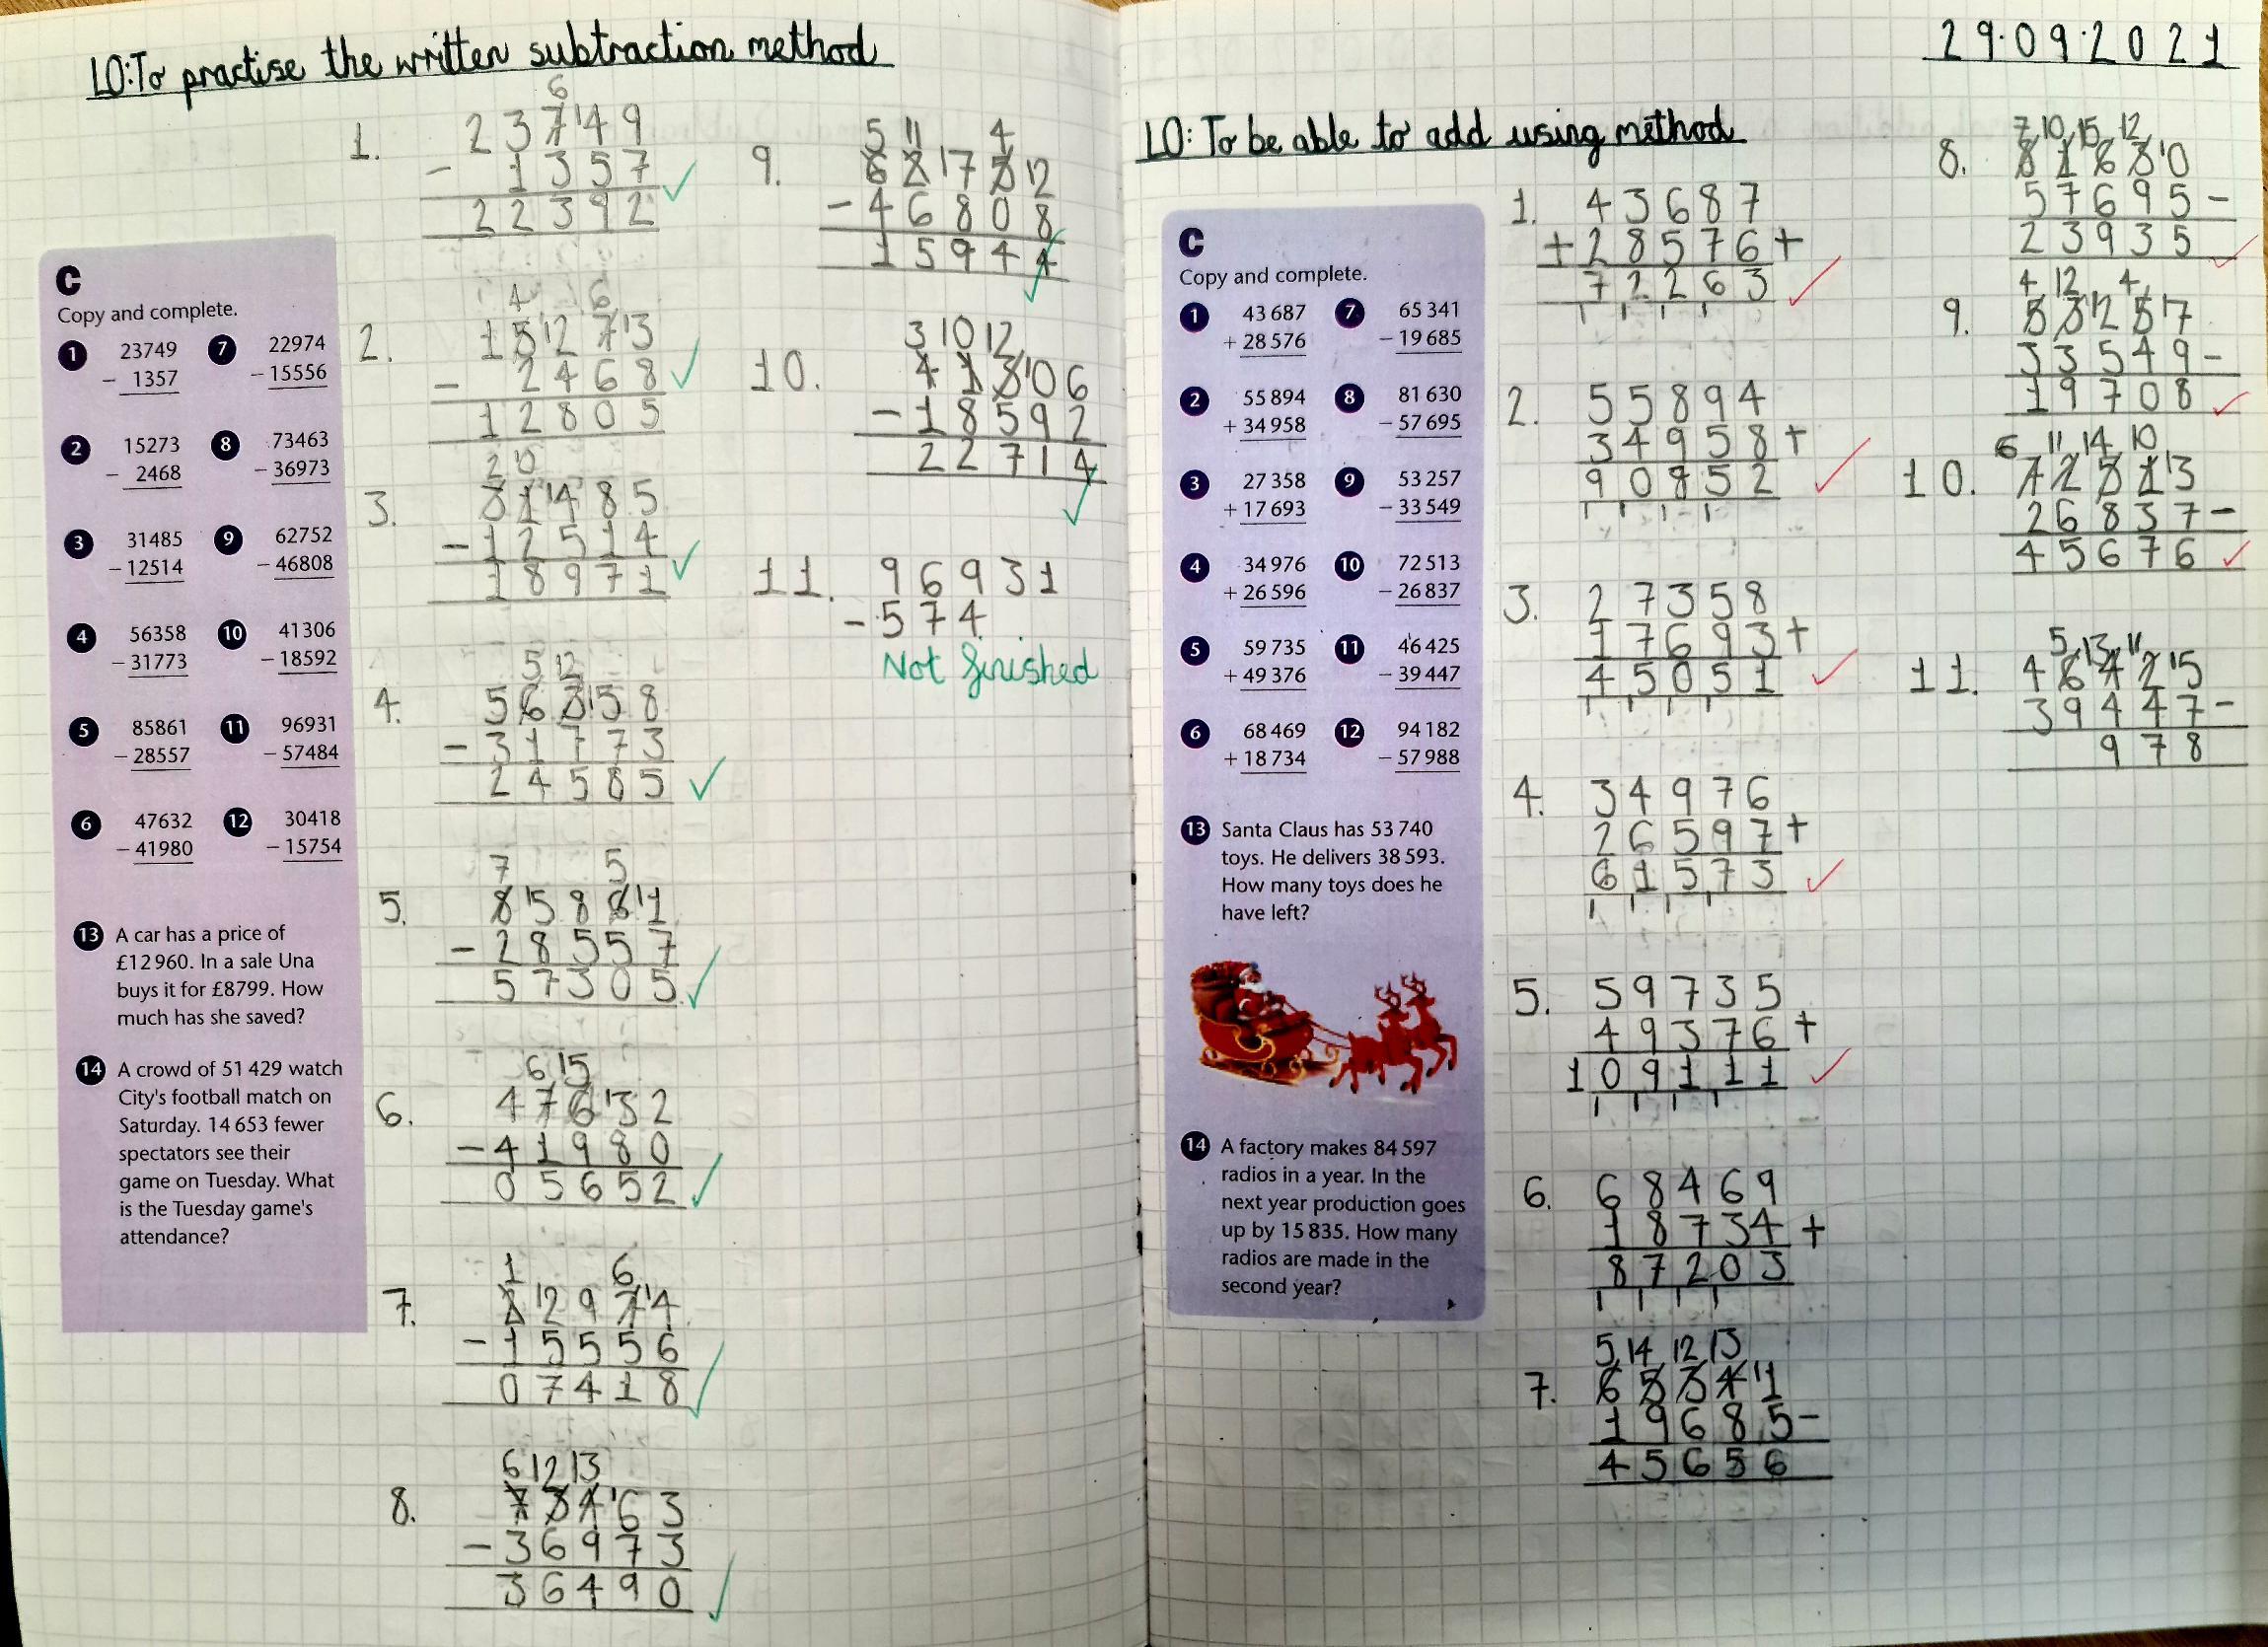 LO: To practise the written subtraction method
C
Copy and complete.
1 23749
- 1357
2 15273
- 2468
3 31485
- 12514
4 56358
- 31773
5 85861
- 28557
6 47632
- 41980
7 22974
- 15556
8 73463
- 36973
9 62752
- 46808
10 41306
- 18592
11 96931
- 57484
12 30418
- 15754
13 A car has a price of
£12 960. In a sale Una
buys it for £8799. How
much has she saved?
14 A crowd of 51 429 watch
City's football match on
Saturday. 14 653 fewer
spectators see their
game on Tuesday. What
is the Tuesday game's
attendance?
6
1. 2 3 7 14 9
- 1 3 5 7
2 2 3 9 2
4 6
2. 1 5 12 7 13
- 2 4 6 8
1 2 8 0 5
2 10
3. 3 1 14 8 5
- 1 2 5 1 4
1 8 9 7 1
5 12
4. 5 6 3 15 8
- 3 1 7 7 3
2 4 5 8 5
7 5
5. 8 15 8 6 11
- 2 8 5 5 7
5 7 3 0 5
6 15
6. 4 7 6 13 2
- 4 1 9 8 0
0 5 6 5 2
1 6
7. 2 12 9 7 14
- 1 5 5 5 6
0 7 4 1 8
6 12 13
8. 7 3 4 16 3
- 3 6 9 7 3
3 6 4 9 0
5 11 4
9. 6 2 17 5 12
- 4 6 8 0 8
1 5 9 4 4
3 10 12
10. 4 1 3 10 6
- 1 8 5 9 2
2 2 7 1 4
11. 9 6 9 3 1
- 5 7 4
Not finished
29.09.2021
LO: To be able to add using method
C
Copy and complete.
1 43 687
+ 28 576
2 55 894
+ 34 958
3 27 358
+ 17 693
4 34 976
+ 26 596
5 59 735
+ 49 376
6 68 469
+ 18 734
7 65 341
- 19 685
8 81 630
- 57 695
9 53 257
- 33 549
10 72 513
- 26 837
11 46 425
- 39 447
12 94 182
- 57 988
13 Santa Claus has 53 740
toys. He delivers 38 593.
How many toys does he
have left?
14 A factory makes 84 597
radios in a year. In the
next year production goes
up by 15 835. How many
radios are made in the
second year?
1. 4 3 6 8 7
+ 2 8 5 7 6 +
7 2 2 6 3
1 1 1 1
2. 5 5 8 9 4
3 4 9 5 8 +
9 0 8 5 2
1 1 1 1
3. 2 7 3 5 8
1 7 6 9 3 +
4 5 0 5 1
1 1 1 1
4. 3 4 9 7 6
2 6 5 9 7 +
6 1 5 7 3
1 1 1 1
5. 5 9 7 3 5
4 9 3 7 6 +
1 0 9 1 1 1
1 1 1 1
6. 6 8 4 6 9
1 8 7 3 4 +
8 7 2 0 3
1 1 1 1
5 14 12 13
7. 6 5 3 4 11
1 9 6 8 5 -
4 5 6 5 6
7 10 15 12
8. 8 1 6 3 10
5 7 6 9 5 -
2 3 9 3 5
4 12 4
9. 5 3 12 5 17
3 3 5 4 9 -
1 9 7 0 8
6 11 14 10
10. 7 2 5 1 13
2 6 8 3 7 -
4 5 6 7 6
5 13 11
11. 4 6 4 2 15
3 9 4 4 7 -
9 7 8